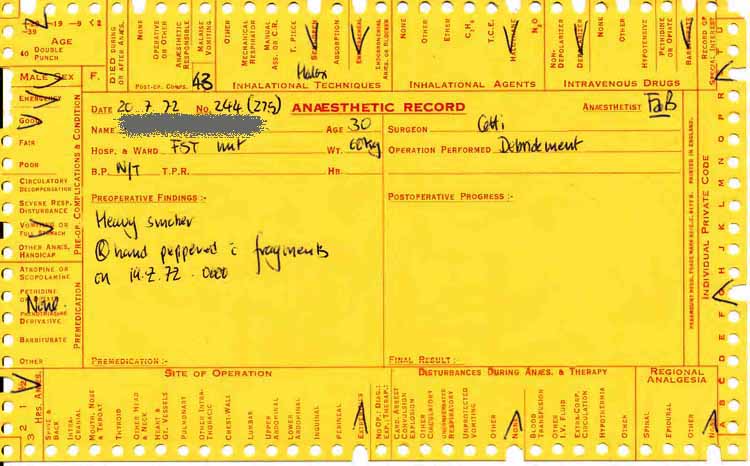 -19
-39
-9
< 2
AGE
40 DOUBLE PUNCH
DIED DURING OR AFTER ANÆS.
NONE
OPERATIVE OR OTHER
ANÆSTHETIC RESPONSIBLE
MALAISE VOMITING
OTHER
MECHANICAL RESPIRATOR
MANUAL ASS. OR C.R.
T. PIECE
ABSORPTION
ENDOTRACHEAL
ENDOBRONCHIAL ANÆS. OR BLOCKER
NONE
OTHER
ETHER
C₃H₆
HALOTHANE
N₂O
T.C.E.
NON-DEPOLARIZER
DEPOLARIZER
NONE
OTHER
HYPOTENSIVE
PETHIDINE OR OPIATE
BARBITURATE
RECORD OF SPECIAL INTEREST
MALE SEX F.
POST-OP. COMPS. 48
Halox
INHALATIONAL TECHNIQUES
INHALATIONAL AGENTS
INTRAVENOUS DRUGS
DATE 20.7.72 No. 244 (279)
ANÆSTHETIC RECORD
ANÆSTHETIST FaB
NAME
AGE 30
SURGEON Cetti
HOSP. & WARD FST unit
WT. 60kg
OPERATION PERFORMED Debridement
B.P. N/T T.P.R.
HB.
PREOPERATIVE FINDINGS :-
POSTOPERATIVE PROGRESS :-
Heavy smoker
Ⓡ hand peppered c̄ fragments
on 19.7.72 . 0000
PREMEDICATION :-
FINAL RESULT :-
EMERGENCY
GOOD
FAIR
POOR
CIRCULATORY DECOMPENSATION
SEVERE RESP. DISTURBANCE
VOMITING OR FULL STOMACH
OTHER ANÆS. HANDICAP
PRE-OP. COMPLICATIONS & CONDITION
ATROPINE OR SCOPOLAMINE
PETHIDINE
None
PHENOTHIAZINE DERIVATIVE
BARBITURATE
OTHER
PREMEDICATION
PRINTED IN ENGLAND.
INDIVIDUAL PRIVATE CODE
A B C D E F G H J K L M N O P R S T U
SITE OF OPERATION
DISTURBANCES DURING ANÆS. & THERAPY
REGIONAL ANALGESIA
3 2 1 ½
HRS. ANÆS.
SPINE & BACK
INTRA-CRANIAL
MOUTH, NOSE & THROAT
THYROID
OTHER HEAD & NECK
HEART & GT. VESSELS
PULMONARY
OTHER INTRA-THORACIC
CHEST-WALL
LUMBAR
UPPER ABDOMINAL
LOWER ABDOMINAL
INGUINAL
PERINEAL
EXTREMITIES
NO OP. DIAG.: EXP.: THERAP.
CARD. ARREST CONVULSION EXPLOSION
OTHER CIRCULATORY
UNANTICIPATED RESPIRATORY
UNEXPECTED VOMITING
OTHER
NONE
BLOOD TRANSFUSION
OTHER I.V. FLUID
EXTRA-CORP. CIRCULATION
HYPOTHERMIA
OTHER
SPINAL
EPIDURAL
OTHER